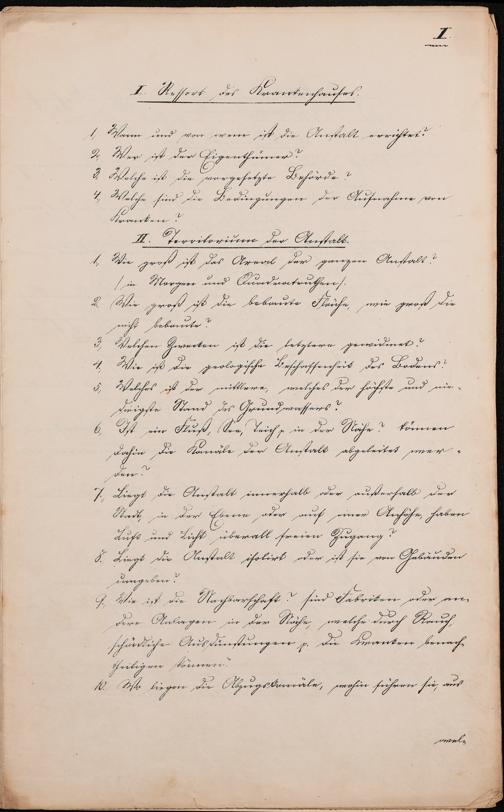 I.
I. Ressort des Krankenhauses.
1, Wann und von wem ist die Anstalt errichtet?
2, Wer ist der Eigenthümer?
3, Welche ist die vorgesetzte Behörde?
4, Welche sind die Bedingungen der Aufnahme von
Kranken?
II. Territorium der Anstalt.
1, Wie groß ist das Areal der ganzen Anstalt?
/in Morgen und Quadratruthen/.
2, Wie groß ist die bebaute Fläche, wie groß die
nicht bebaute?
3, Welchen Zwecken ist die letztere gewidmet?
4, Wie ist die geologische Beschaffenheit des Bodens?
5, Welches ist der mittlere, welches der höchste und nie-
drigste Stand des Grundwassers?
6, Ist ein Fluß, See, Teich p. in der Nähe? können
dahin die Kanäle der Anstalt abgeleitet wer-
den?
7, Liegt die Anstalt innerhalb oder außerhalb der
Stadt, in der Ebene oder auf einer Anhöhe, haben
Luft und Licht überall freien Zugang?
8, Liegt die Anstalt isolirt oder ist sie von Gebäuden
umgeben?
9, Wie ist die Nachbarschaft? sind Fabriken oder an-
dere Anlagen in der Nähe, welche durch Rauch,
schädliche Ausdünstungen p. die Kranken benach-
theiligen können?
10, Wo liegen die Abzugskanäle, wohin führen sie, aus
wel-